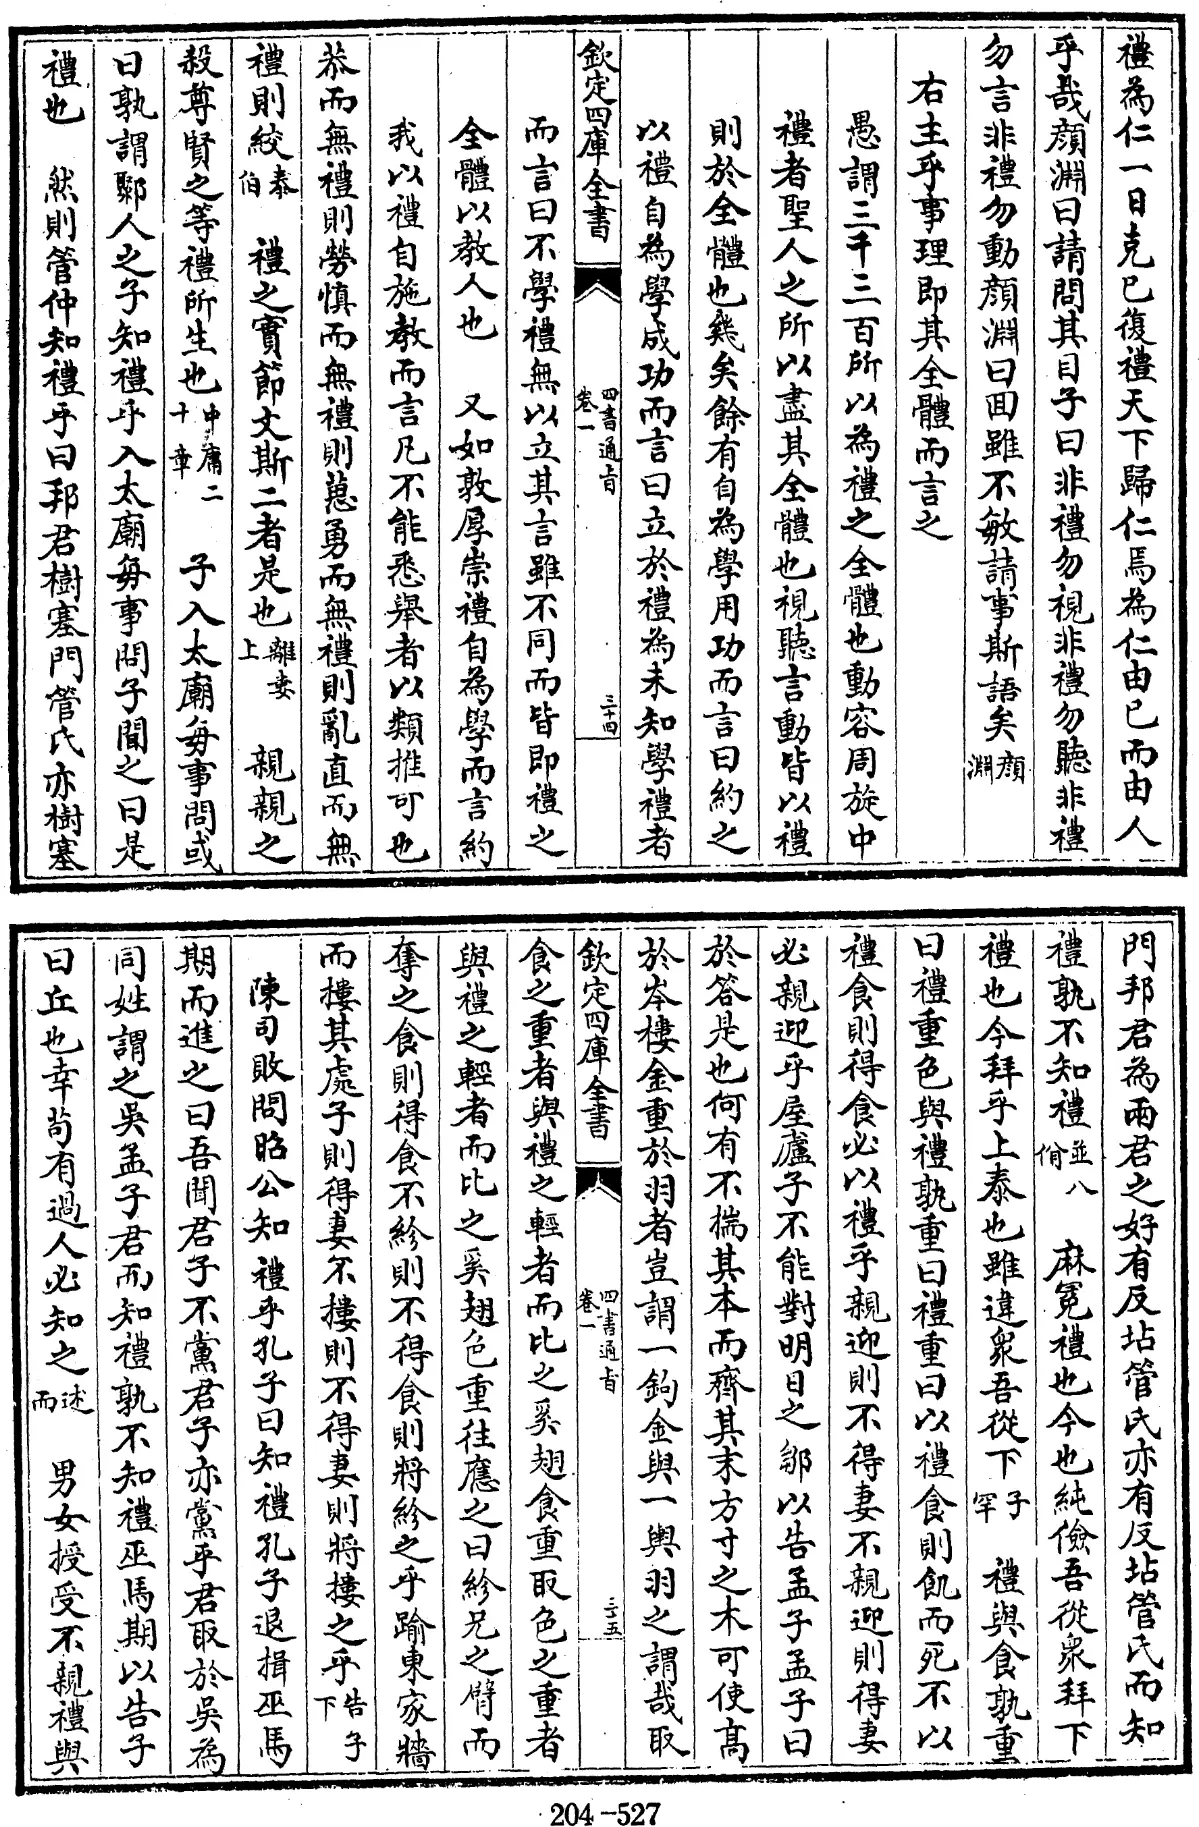 禮為仁一日克已復禮天下歸仁焉為仁由已而由人
乎哉顔淵曰請問其目子曰非禮勿視非禮勿聽非禮
勿言非禮勿動顔淵曰回雖不敏請事斯語矣顔淵
右主乎事理即其全體而言之
愚謂三千三百所以為禮之全體也動容周旋中
禮者聖人之所以盡其全體也視聽言動皆以禮
則於全體也幾矣餘有自為學用功而言曰約之
以禮自為學成功而言曰立於禮為未知學禮者
欽定四庫全書 四書通旨卷一 三十四
而言曰不學禮無以立其言雖不同而皆即禮之
全體以教人也 又如敦厚崇禮自為學而言約
我以禮自施教而言凡不能悉舉者以類推可也
恭而無禮則勞慎而無禮則葸勇而無禮則亂直而無
禮則絞泰伯 禮之實節文斯二者是也離婁上 親親之
殺尊賢之等禮所生也中庸二十章 子入太廟每事問或
曰孰謂鄹人之子知禮乎入太廟每事問子聞之曰是
禮也 然則管仲知禮乎曰邦君樹塞門管氏亦樹塞
門邦君為兩君之好有反坫管氏亦有反坫管氏而知
禮孰不知禮並八佾 麻冕禮也今也純儉吾從衆拜下
禮也今拜乎上泰也雖違衆吾從下子罕 禮與食孰重
曰禮重色與禮孰重曰禮重曰以禮食則飢而死不以
禮食則得食必以禮乎親迎則不得妻不親迎則得妻
必親迎乎屋廬子不能對明日之鄒以告孟子孟子曰
於答是也何有不揣其本而齊其末方寸之木可使高
於岑樓金重於羽者豈謂一鉤金與一輿羽之謂哉取
欽定四庫全書 四書通旨卷一 三十五
食之重者與禮之輕者而比之奚翅食重取色之重者
與禮之輕者而比之奚翅色重往應之曰紾兄之臂而
奪之食則得食不紾則不得食則將紾之乎踰東家牆
而摟其處子則得妻不摟則不得妻則將摟之乎告子下
陳司敗問昭公知禮乎孔子曰知禮孔子退揖巫馬
期而進之曰吾聞君子不黨君子亦黨乎君取於吳為
同姓謂之吳孟子君而知禮孰不知禮巫馬期以告子
曰丘也幸苟有過人必知之述而 男女授受不親禮與
204-527